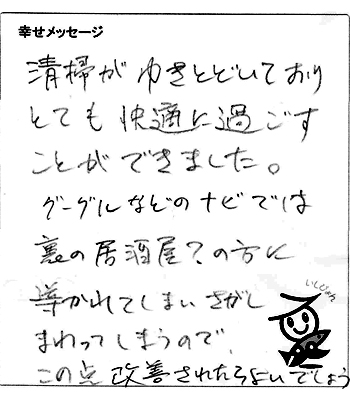 幸せメッセージ
清掃がゆきとどいており
とても快適に過ごす
ことができました。
グーグルなどのナビでは
裏の居酒屋?の方に
導かれてしまいさがし
まわってしまうので、
この点改善されたらよいでしょう
いしじょん